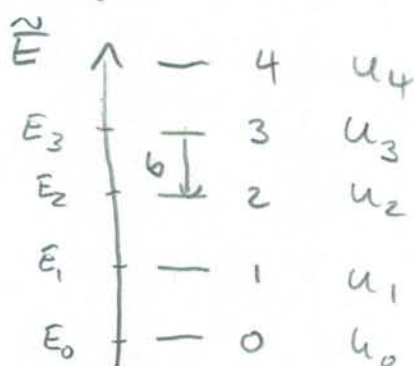 Ẽ 4 u₄
E₃ 3 u₃
b
E₂ 2 u₂
E₁ 1 u₁
E₀ 0 u₀